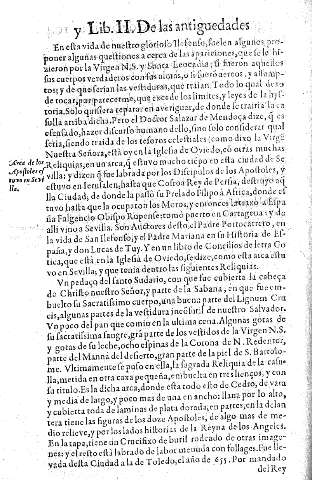 y Lib. II. De las antiguedades
En esta vida de nuestro glorioso Ilefonso, suelen algunos pro-
poner algunas questiones a cerca de las apariciones, que se le hi-
zieron por la Virgen N.S. y Santa Leocadia; si fueron aquellos
sus cuerpos verdaderos con sus almas, o si fueró aereos, y assump-
tos; y de que serian las vestiduras, que traian. Todo lo qual dexo
de tocar, para parecerme, que excede los limites, y leyes de la hys-
toria. Solo quisiera reparar en averiguar, de donde se trairia la ca
sulla arriba dicha. Pero el Doctor Salazar de Mendoça dize, q̃ es
escusado, hazer discurso humano dello, sino solo considerar qual
seria, siendo traida de los tesoros celestiales (como dixo la Virgẽ
Nuestra Señora) està oy en la Iglesia de Oviedo, cõ otras muchas
Reliquias, en un arca, q̃ estuvo mucho tiẽpo en esta ciudad de Se
villa; y dizen q̃ fue labrada por los Discipulos de los Apostoles, y
estuvo en Ierusalen, hasta que Cosroe Rey de Persia, destruyo aq̃
lla Ciudad; de donde la passò su Prelado Filipo à Africa, donde es
tuvo hasta que la ocuparon los Moros, y entonces la traxo a Espa
ña Fulgencio Obispo Rupense: tomò puerto en Cartagena: y de
alli vino a Sevilla. Son Auctores desto, el Padre Portocarrero, en
la vida de San Ilefonso; y el Padre Mariana en su Historia de Es-
paña, y don Lucas de Tuy. Y en un libro de Concilios de letra Go
tica, que està en la Iglesia de Oviedo, se dize, como esta arca estu
vo en Sevilla; y que tenia dentro las siguientes Reliquias.
Arca de los
Apostoles q̃
estuvo en Sevi-
lla.
Un pedaço del santo Sudario, con que fue cubierta la cabeça
de Christo nuestro Señor, y parte de la Sabana, en que fue em-
buelto su Sacratissimo cuerpo, una buena parte del Lignum Cru
cis, algunas partes de la vestidura incõsutil de nuestro Salvador.
Vn poco del pan que comio en la ultima cena. Algunas gotas de
su sacratissima sangre, grã parte de los vestidos de la Virgen N.S.
y gotas de su leche, ocho espinas de la Corona de N. Redentor,
parte del Mannà del desierto, gran parte de la piel de S. Bartolo-
me. Vltimamente se puso en ella, la sagrada Reliquia de la casu-
lla, metida en otra caxa pequeña, embuelta en tres lienços, y con
su titulo. Es la dicha arca, donde esta todo esto de Cedro, de vara
y media de largo, y poco mas de una en ancho: llana por lo alto,
y cubierta toda de laminas de plata dorada, en partes, en la delan
tera tiene las figuras de los doze Apostoles, de algo mas de me-
dio relieve, y por los lados historias de la Reyna de los Angeles.
En la tapa, tiene un Crucifixo de buril rodeado de otras image-
nes: y el resto està labrado de labor menuda con follages. Fue lle-
vada desta Ciudad a la de Toledo, el año de 655. Por mandado
del Rey